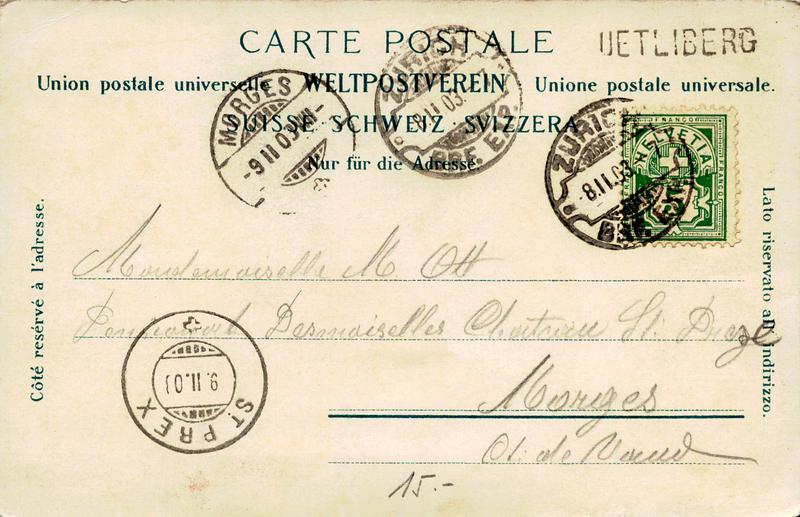 CARTE POSTALE
UETLIBERG
Union postale universelle WELTPOSTVEREIN Unione postale universale.
SUISSE SCHWEIZ SVIZZERA
Nur für die Adresse.
MORGES
-9.II.03.VII-
ZÜRICH
-8.II.03.
BRF. EXP.
ZÜRICH
-8.II.03.
BRF. EXP.
FRANCO
HELVETIA
FRANCO
Côté resérvé à l'adresse.
Lato riservato all'indirizzo.
Mondemoiselle M. Ott
Desmoiselles Chateau St.
Morges
Ct. de Vaud
ST PREX
9.II.03
15.-